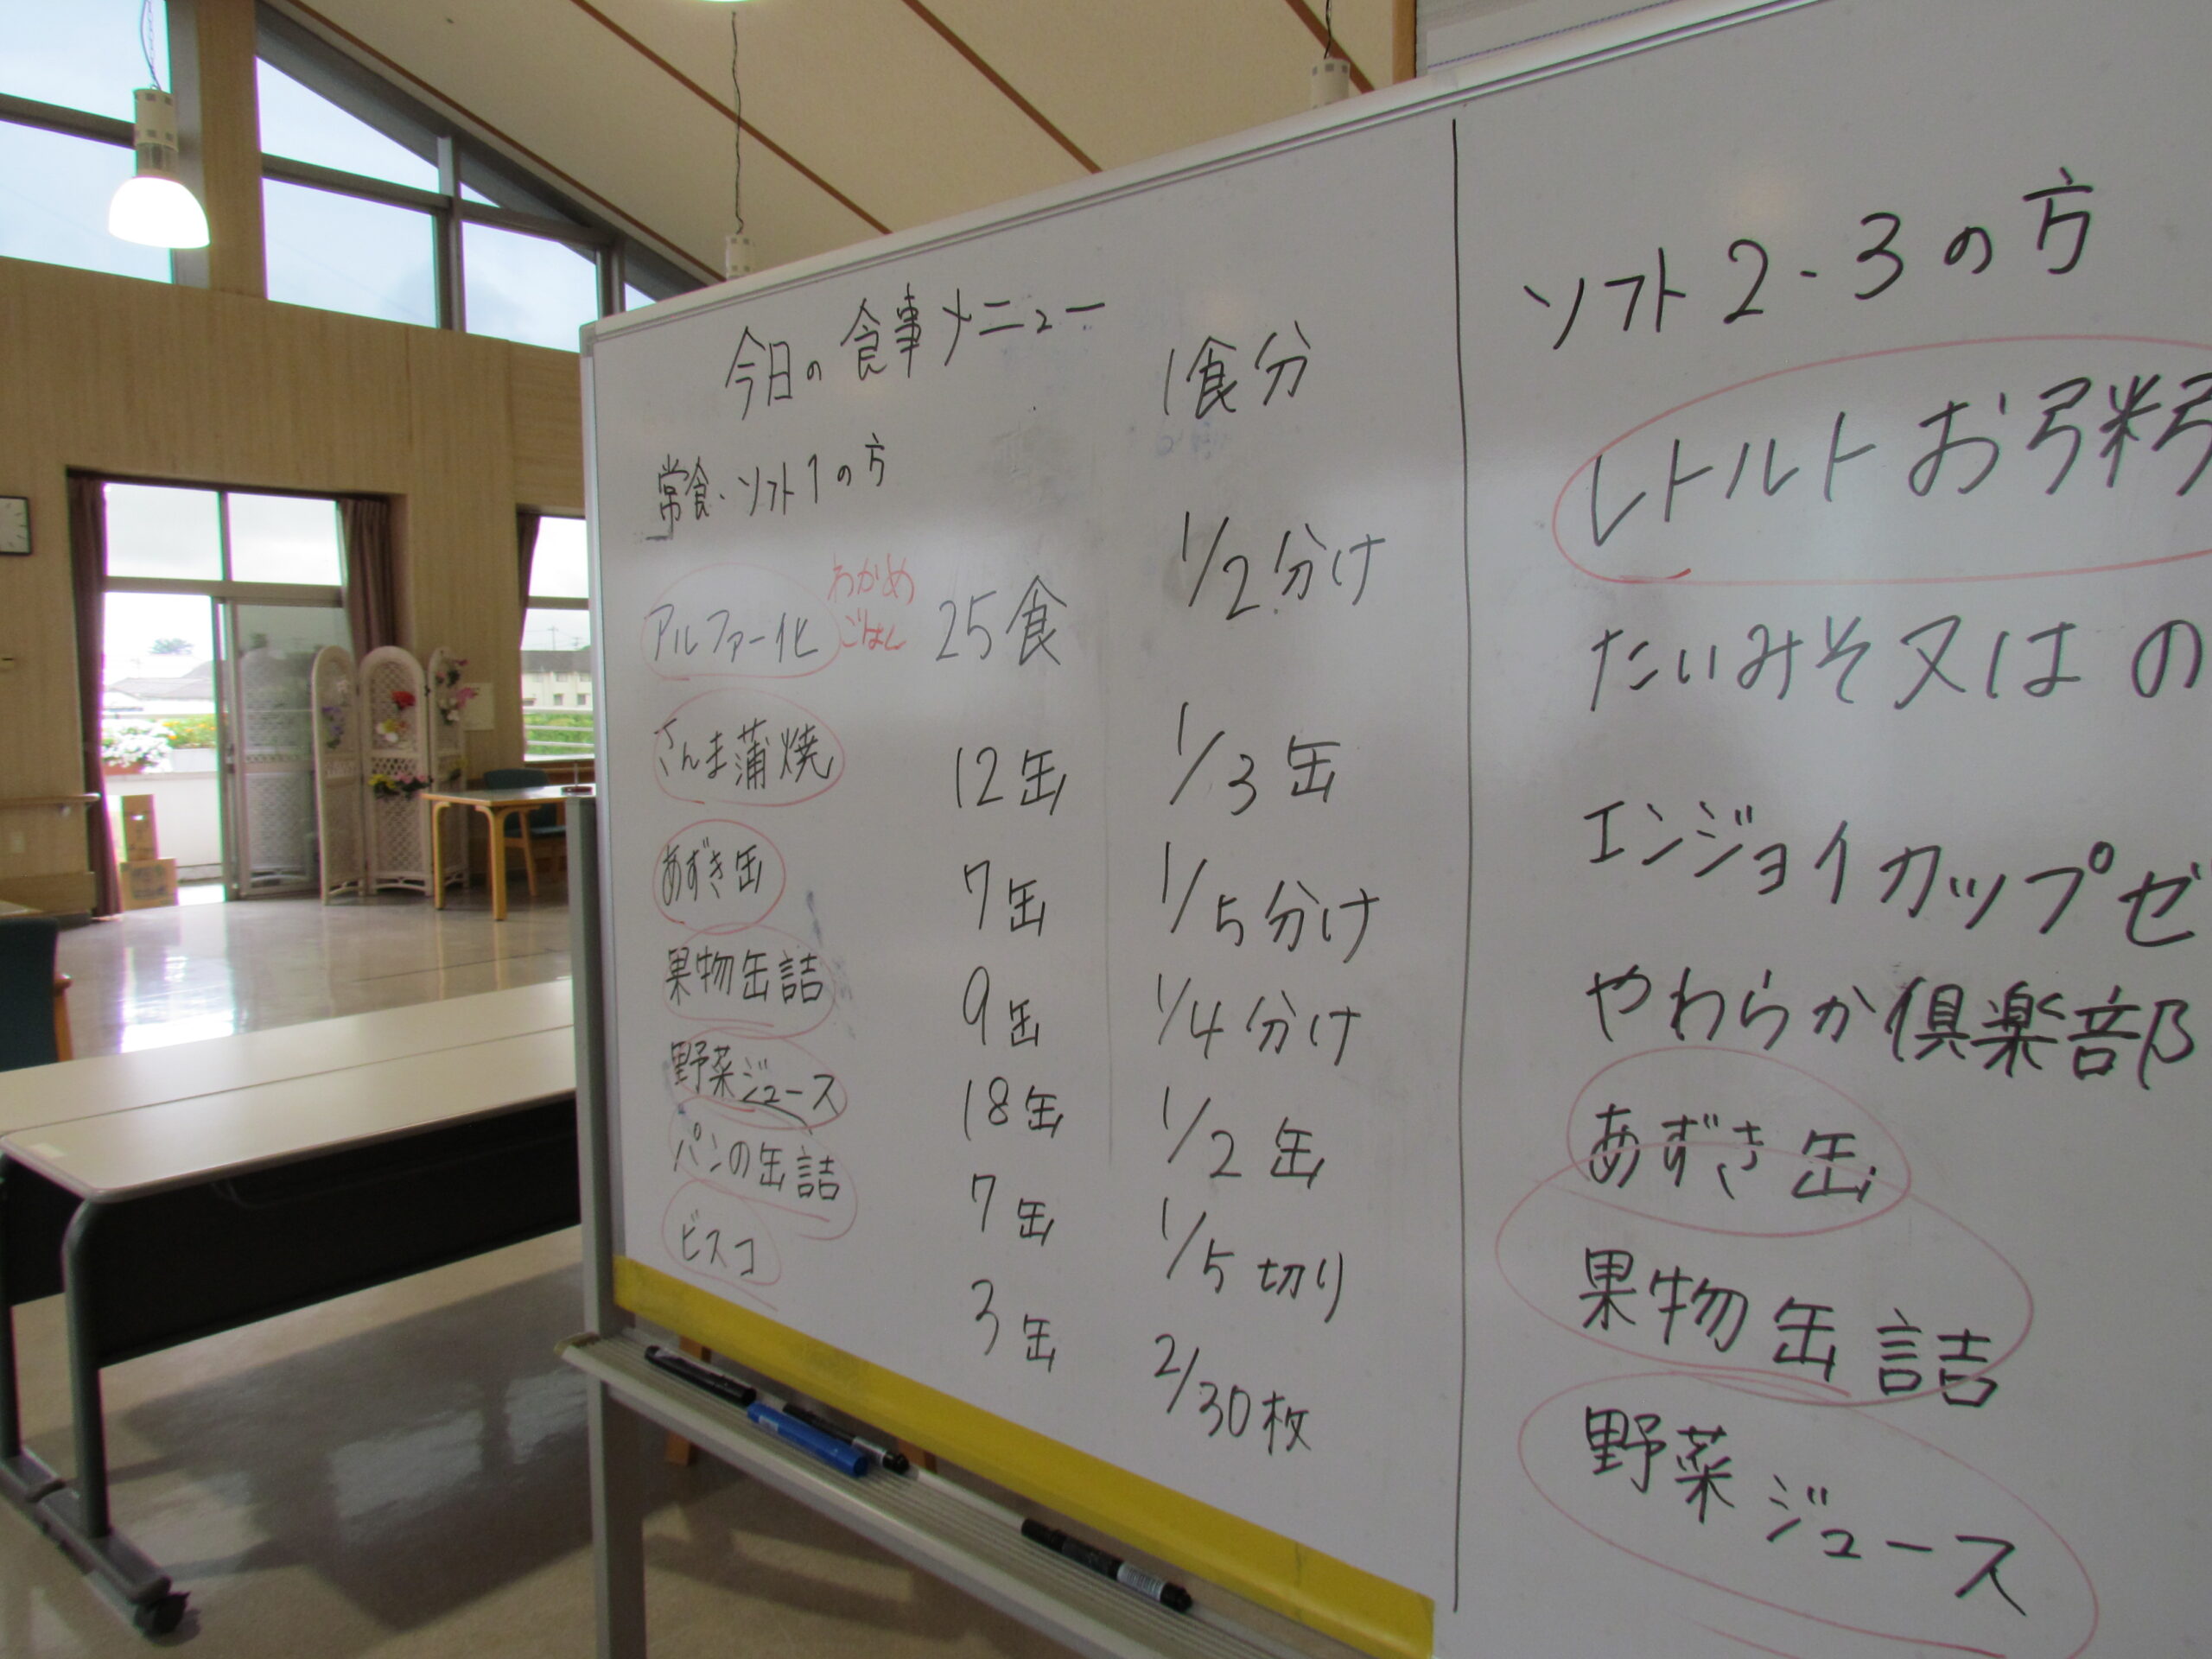 今日の食事メニュー 1食分
常食・ソフト1の方
アルファー化 わかめ ごはん 25食 1/2分け
さんま蒲焼 12缶 1/3缶
あずき缶 7缶 1/5分け
果物缶詰 9缶 1/4分け
野菜ジュース 18缶 1/2缶
パンの缶詰 7缶 1/5切り
ビスコ 3缶 2/30枚
ソフト2・3の方
レトルトお粥
たいみそ又はの
エンジョイカップゼ
やわらか倶楽部
あずき缶
果物缶詰
野菜ジュース